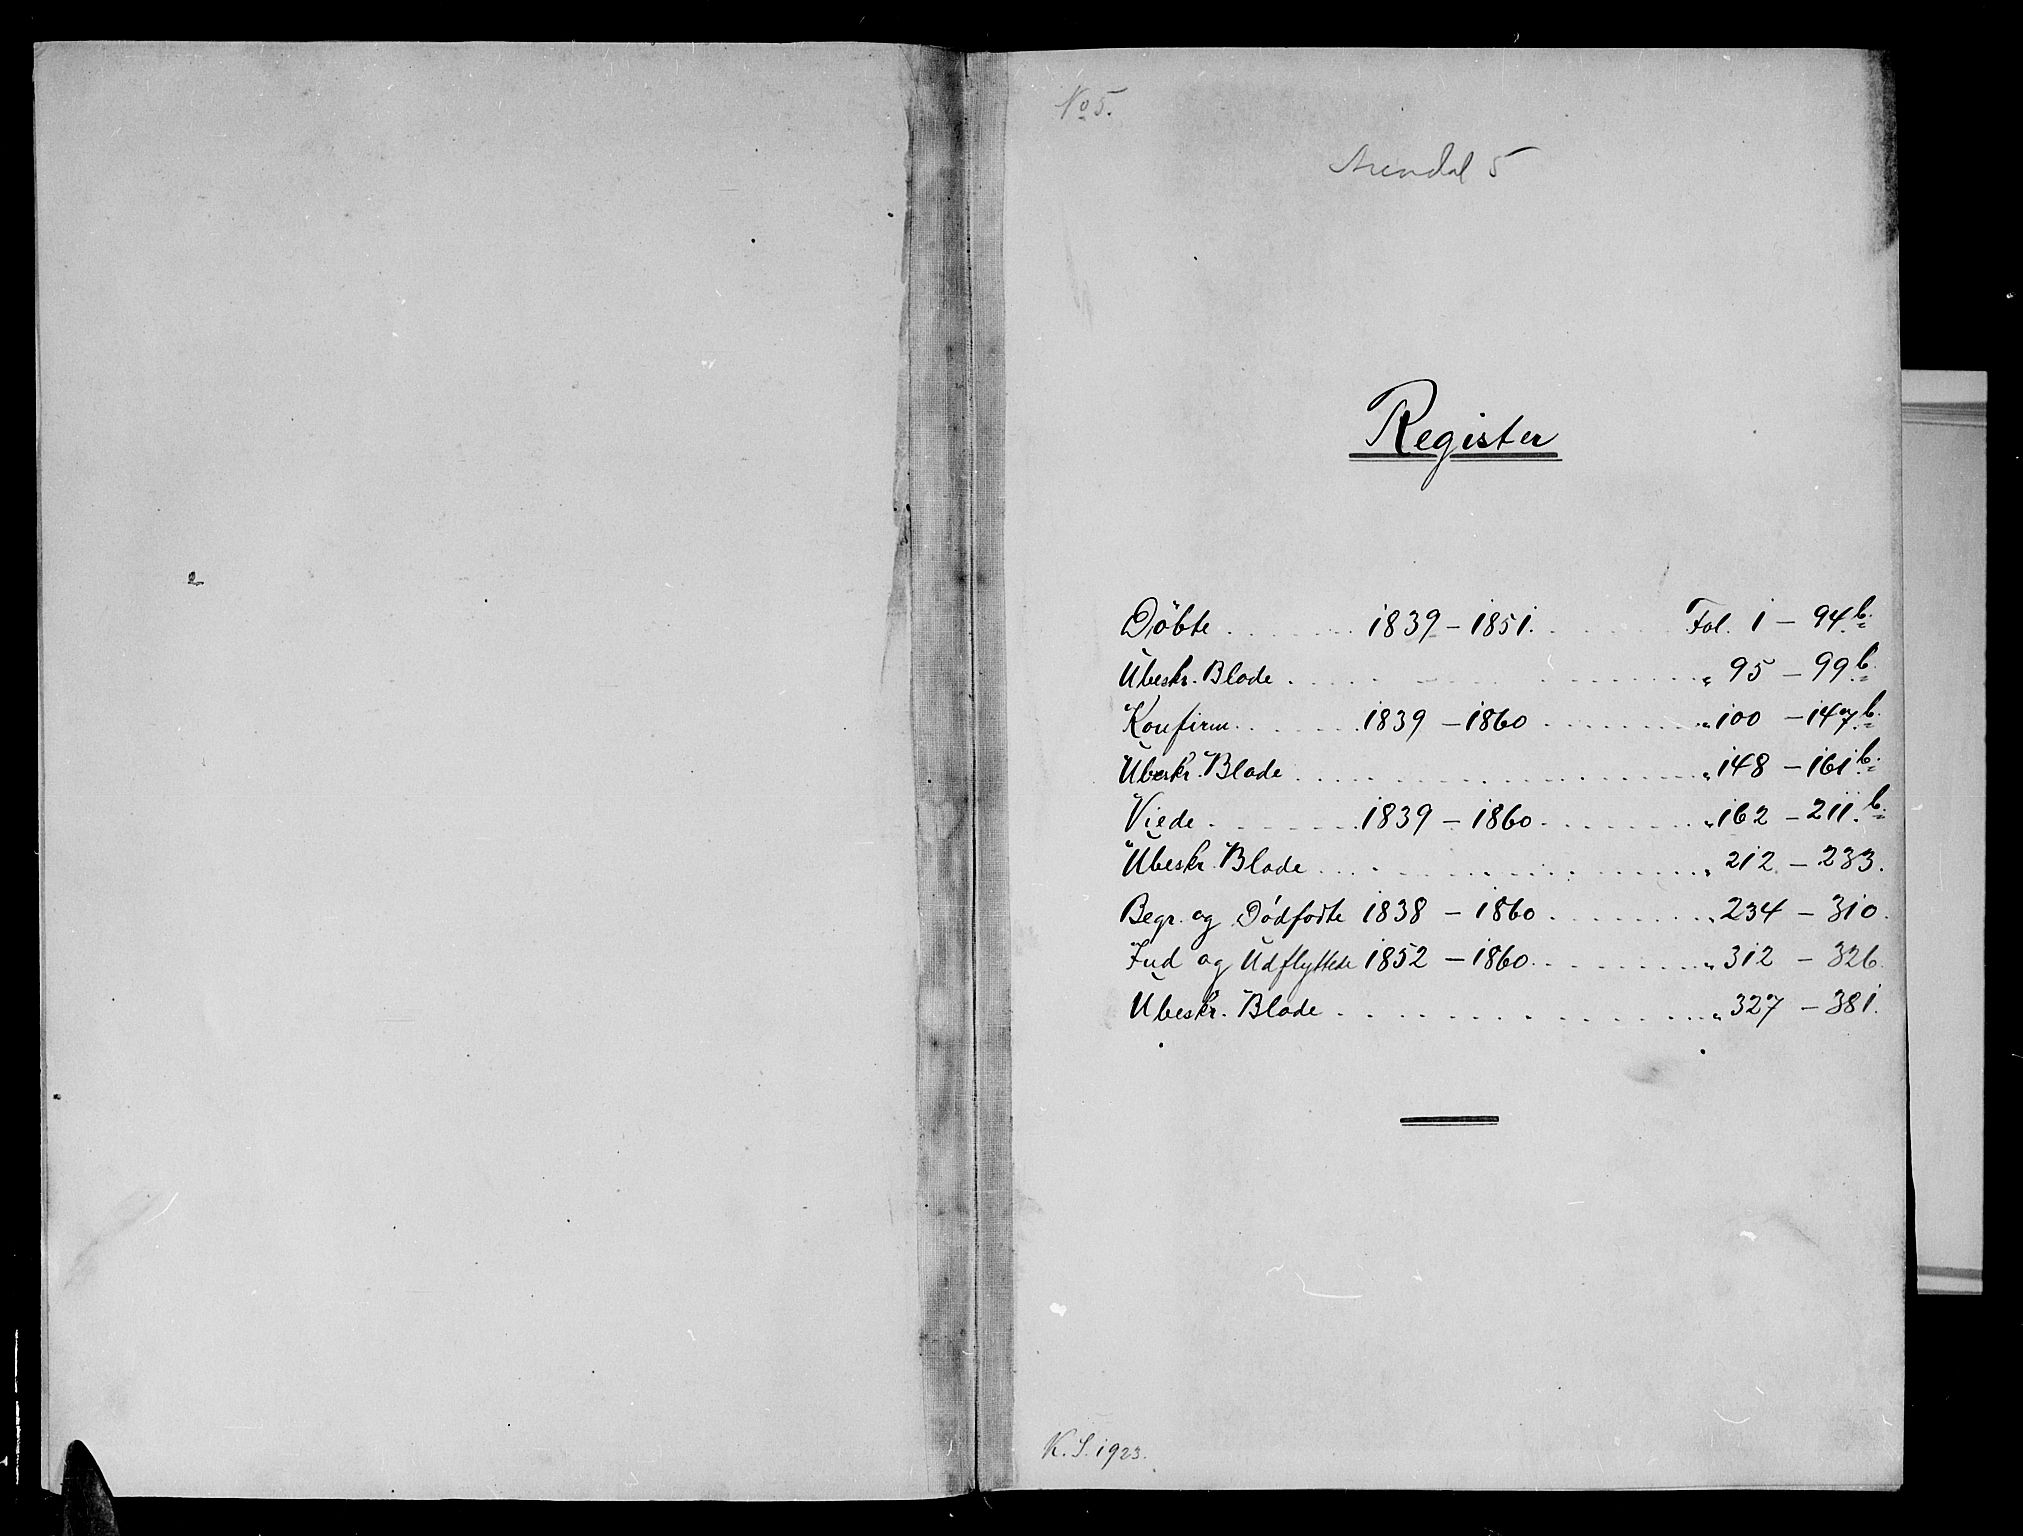 No 5.
Arendal 5
Register
Döbte . . . . . . 1839 – 1851. . . . . . Fol. 1 – 94b.
Ubeskr. Blade . . . . . . „ 95 – 99b.
Konfirm. . . . . . 1839 – 1860 . . . . . . „ 100 – 147b.
Ubeskr. Blade . . . . . . „ 148 – 161b.
Viede . . . . . . 1839 – 1860. . . . . . „ 162 – 211b.
Ubeskr. Blade . . . . . . „ 212 – 233.
Begr. og Dödfödte 1838 – 1860 . . . . . . „ 234 – 310.
Ind og Udflyttede 1852 – 1860. . . . . . „ 312 – 326.
Ubeskr. Blade . . . . . . „ 327 – 381.
K. S. 1923.